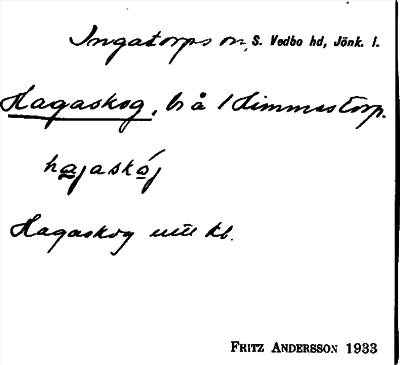 Ingatorps sn, S. Vedbo hd, Jönk. l.
Hagaskog, br å 1 Himmestorp.
hagaskój
Hagaskog kb.
FRITZ ANDERSSON 1933